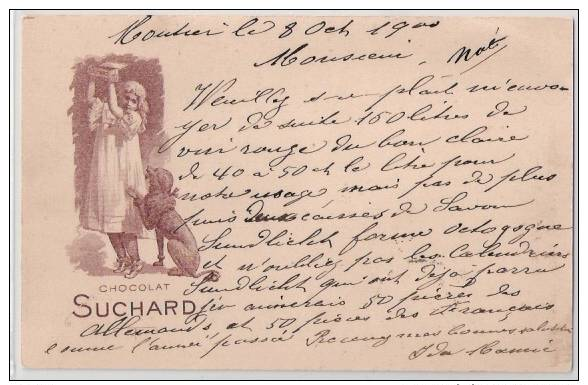 Moutier le 8 Oct 1900
Monsieur,
Weuilly s-v-plait m'envo-
yer de suite 150 litres de
vin rouge du bon claire
de 40 à 50 ct le litre pour
notre usage mais pas de plus
puis deux caisses de Savon
Sundlicht forme octogogne
et n'oubliez pas les Calendriers
Sundlicht qui ont déja parru
j'en aimerais 50 pièces des
allemands et 50 pièces des français
comme l'année passée Recevez mes bonnes
Ida
CHOCOLAT
SUCHARD